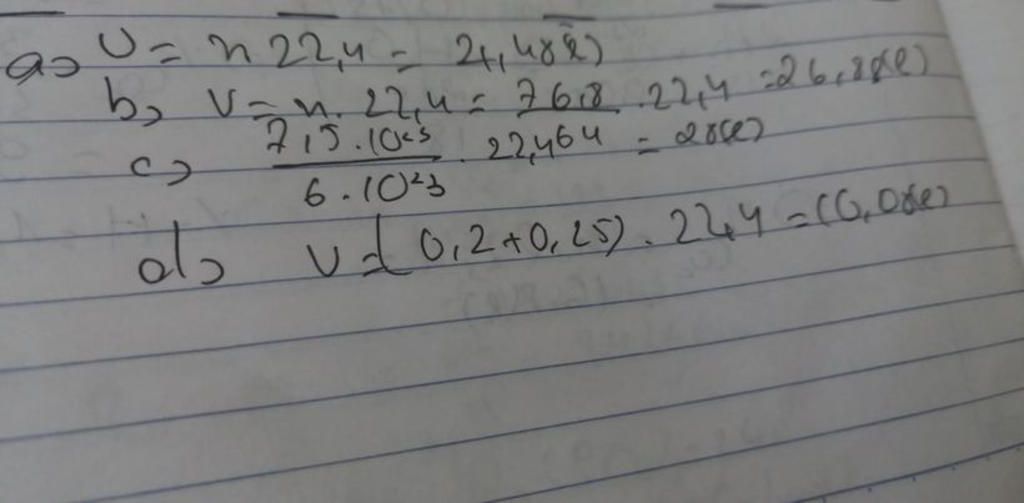 a) V = n 22,4 = 2,48(l)
b) V = n. 22,4 = 76,8 . 22,4 = 26,88(l)
c) 7,5.10²³ / 6.10²³ . 22,4 = 28(l)
64
d) V = (0,2+0,25). 22,4 = 10,08(l)